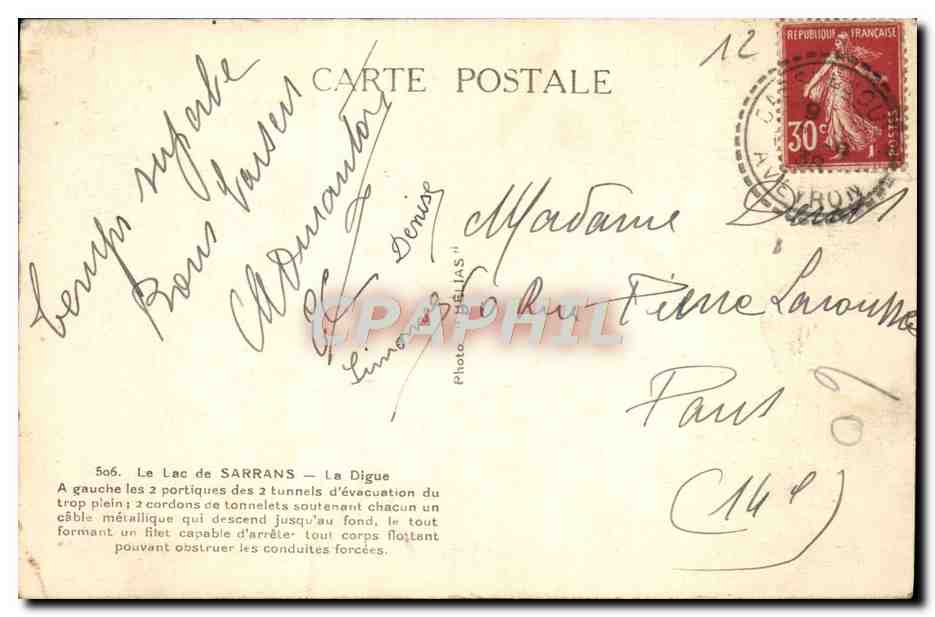 12
CARTE POSTALE
REPUBLIQUE FRANÇAISE
30c
POSTES
AVEYRON
temps superbe
Bons baisers
Denise
Simonne
Madame
56 Rue Pierre Larousse
Paris
(14e)
Photo "HÉLIAS"
CPAPHIL
506. Le Lac de SARRANS — La Digue
A gauche les 2 portiques des 2 tunnels d'évacuation du
trop plein ; 2 cordons de tonnelets soutenant chacun un
câble métallique qui descend jusqu'au fond, le tout
formant un filet capable d'arrêter tout corps flottant
pouvant obstruer les conduites forcées.